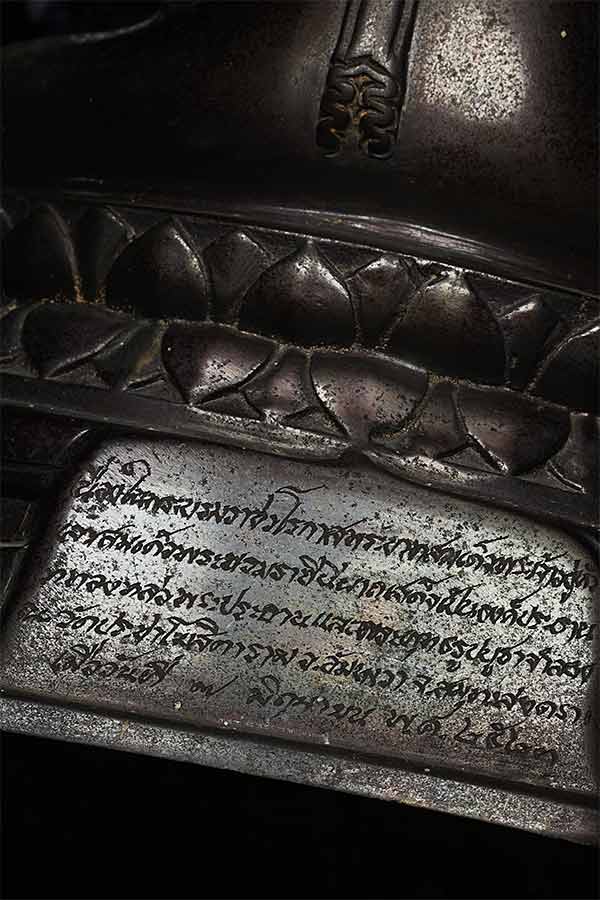 พระบรมราชวโรกาสพระบาทสมเด็จพระเจ้าอยู่หัว
และสมเด็จพระบรมราชินีนาถเสด็จเป็นองค์ประธาน
เททองหล่อพระประธานและพระพุทธรูปบูชาจำลอง
ณ วัดประชาโฆสิตาราม อ.อัมพวา จ.สมุทรสงคราม
เมื่อวันที่ ๗ มิถุนายน พ.ศ. ๒๕๒๓